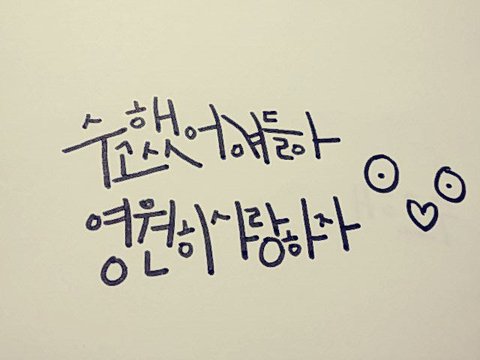 수고했어 얘들아
영원히 사랑하자